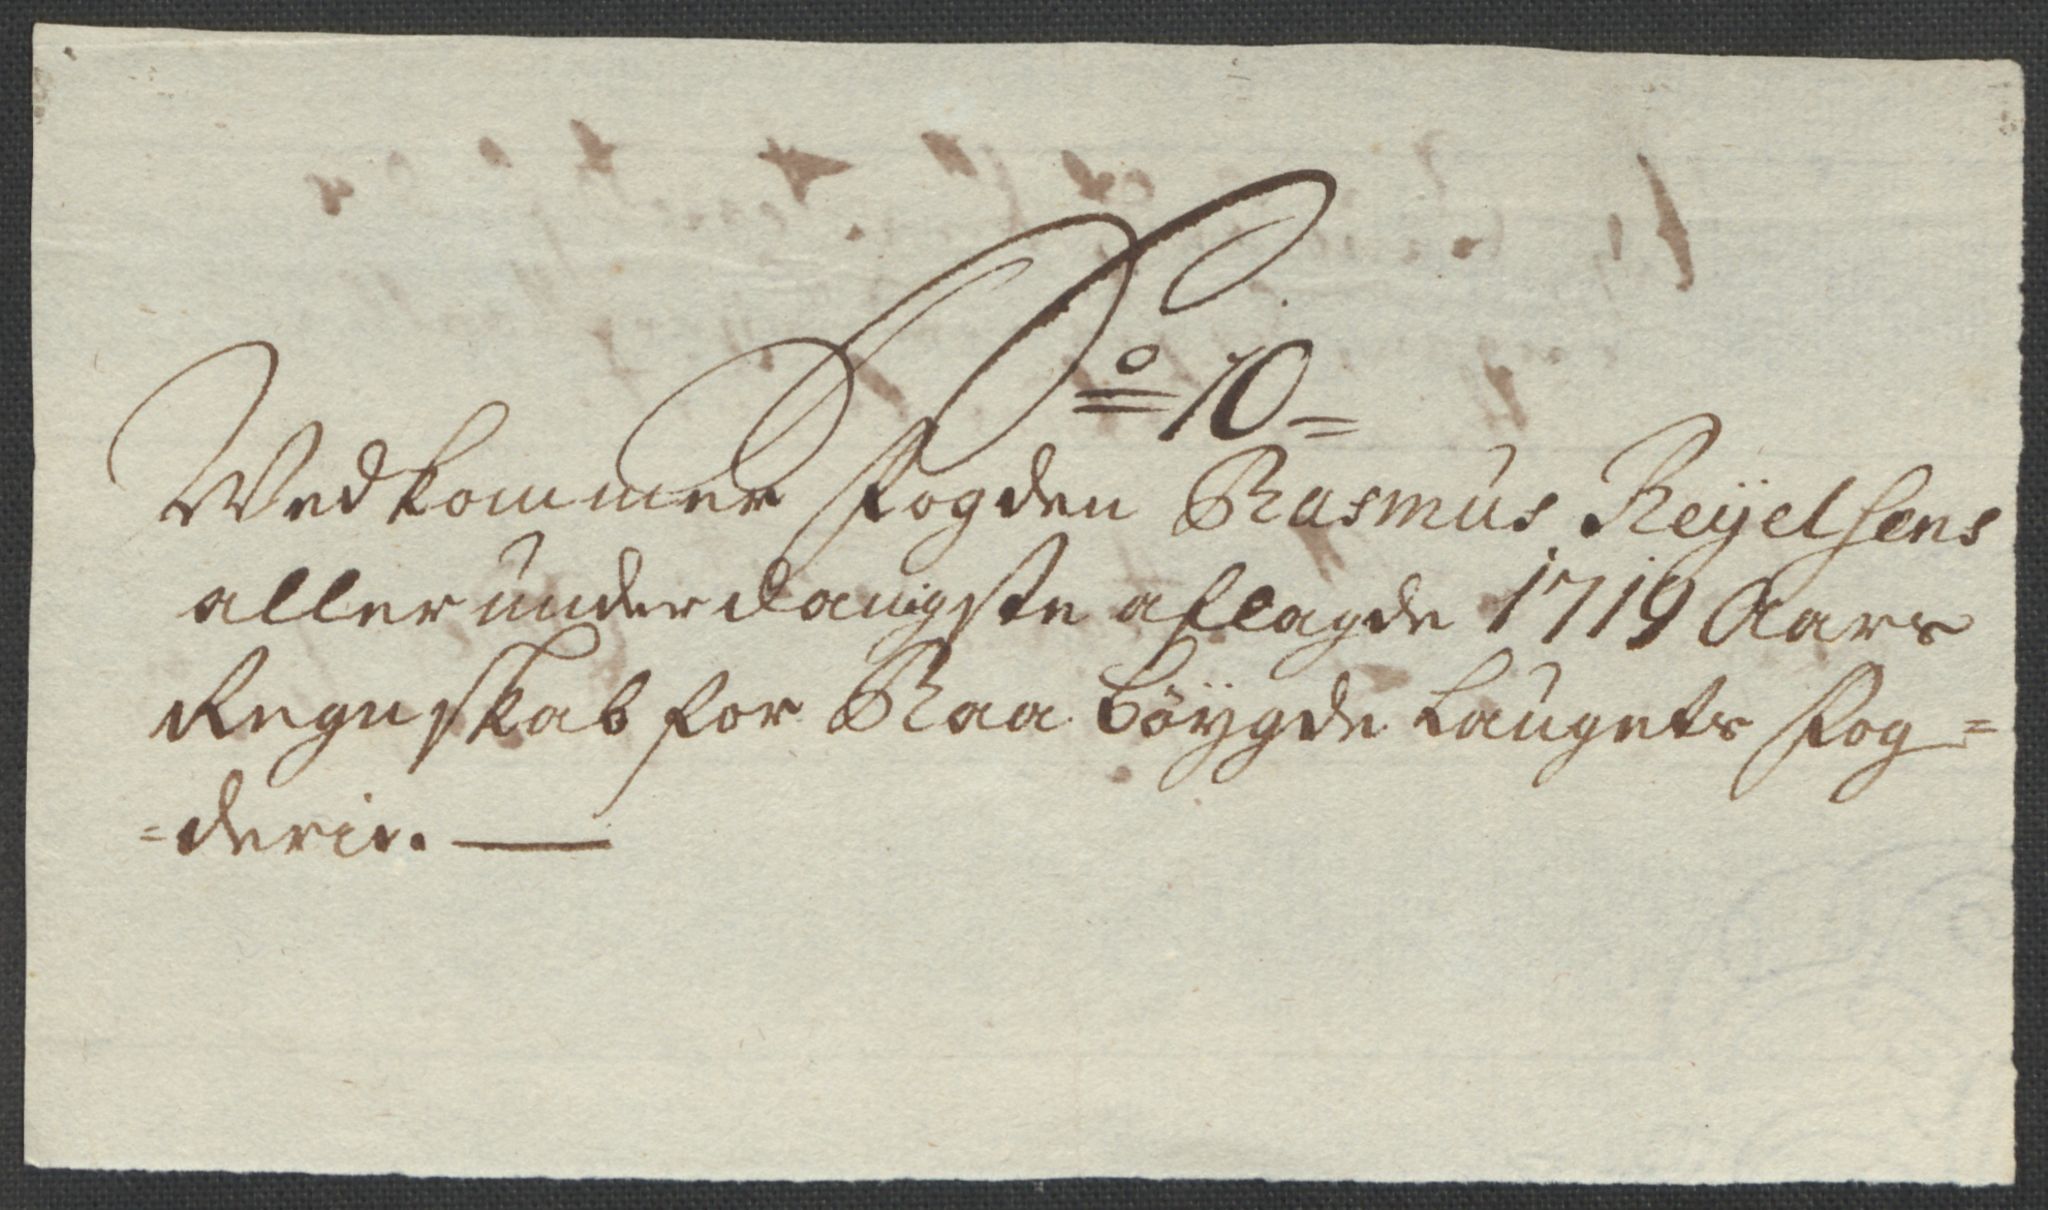 No 10
Vedkommer Fogden Rasmus Reÿelsens
allerunderdanigste aflagde 1719 Aars
Regnskab for Raabÿgde Laugets Fog=
=derie.